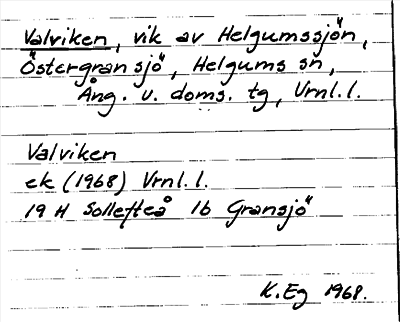 Valviken, vik av Helgumssjön,
Östergransjö, Helgums sn,
Ång. v. doms. tg, Vrnl.l.
Valviken
ek (1968) Vrnl.l.
19 H Sollefteå 1b Gransjö
K.Eg 1968.